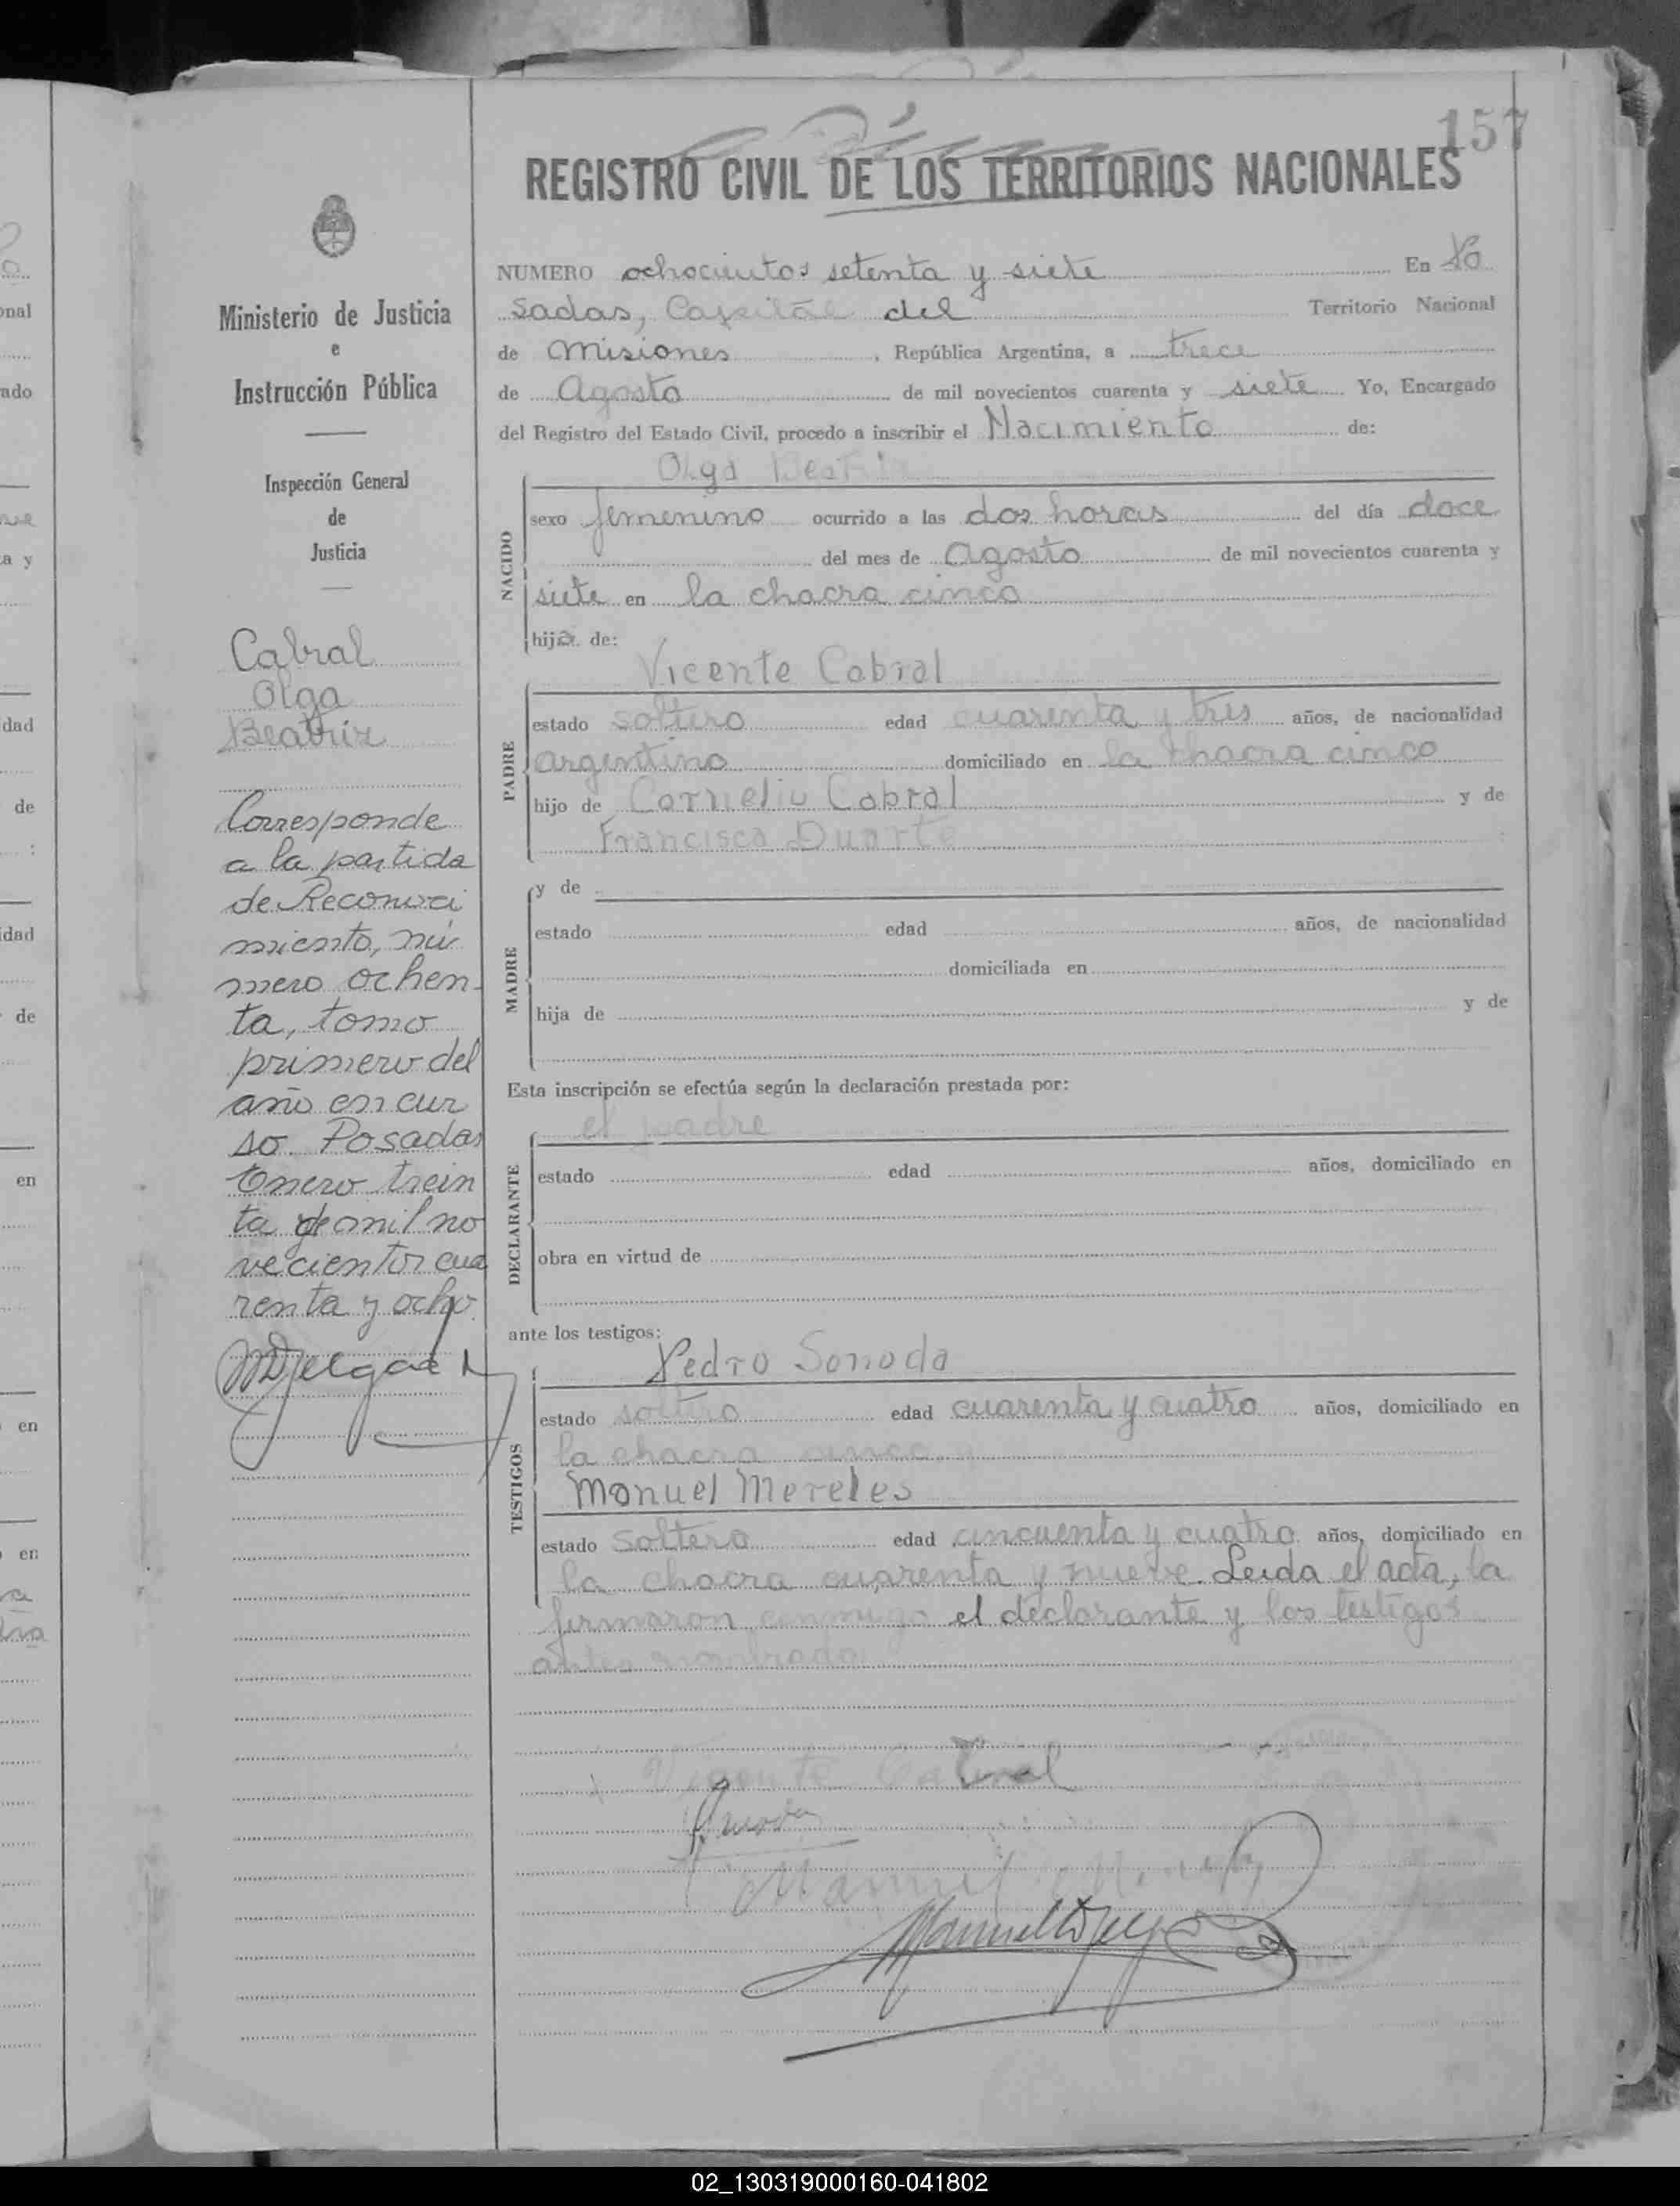 157
REGISTRO CIVIL DE LOS TERRITORIOS NACIONALES
Ministerio de Justicia
e
Instrucción Pública
Inspección General
de
Justicia
Cabral
Olga
Beatriz
Corresponde
a la partida
de Reconoci
miento, nú
mero ochen
ta, tomo
primero del
año en cur
so. Posadas
Enero trein
ta de mil no
vecientos cua
renta y ocho.
NUMERO ochocientos setenta y siete En Po
sadas, Capital del Territorio Nacional
de Misiones, República Argentina, a trece
de Agosto de mil novecientos cuarenta y siete Yo, Encargado
del Registro del Estado Civil, procedo a inscribir el Nacimiento de:
Olga Beatriz
NACIDO
sexo femenino ocurrido a las dos horas del día doce
del mes de Agosto de mil novecientos cuarenta y
siete en la chacra cinco
hija de:
Vicente Cabral
PADRE
estado soltero edad cuarenta y tres años, de nacionalidad
argentino domiciliado en la chacra cinco
hijo de Cornelio Cabral y de
Francisca Duarte
MADRE
y de
estado edad años, de nacionalidad
domiciliada en
hija de y de
Esta inscripción se efectúa según la declaración prestada por:
el padre
DECLARANTE
estado edad años, domiciliado en
obra en virtud de
ante los testigos:
Pedro Sonoda
TESTIGOS
estado soltero edad cuarenta y cuatro años, domiciliado en
la chacra cinco,
Manuel Mereles
estado soltero edad cincuenta y cuatro años, domiciliado en
la chacra cuarenta y nueve. Leida el acta, la
firmaron conmigo el declarante y los testigos
antes nombrados
Vicente Cabral
02_130319000160-041802